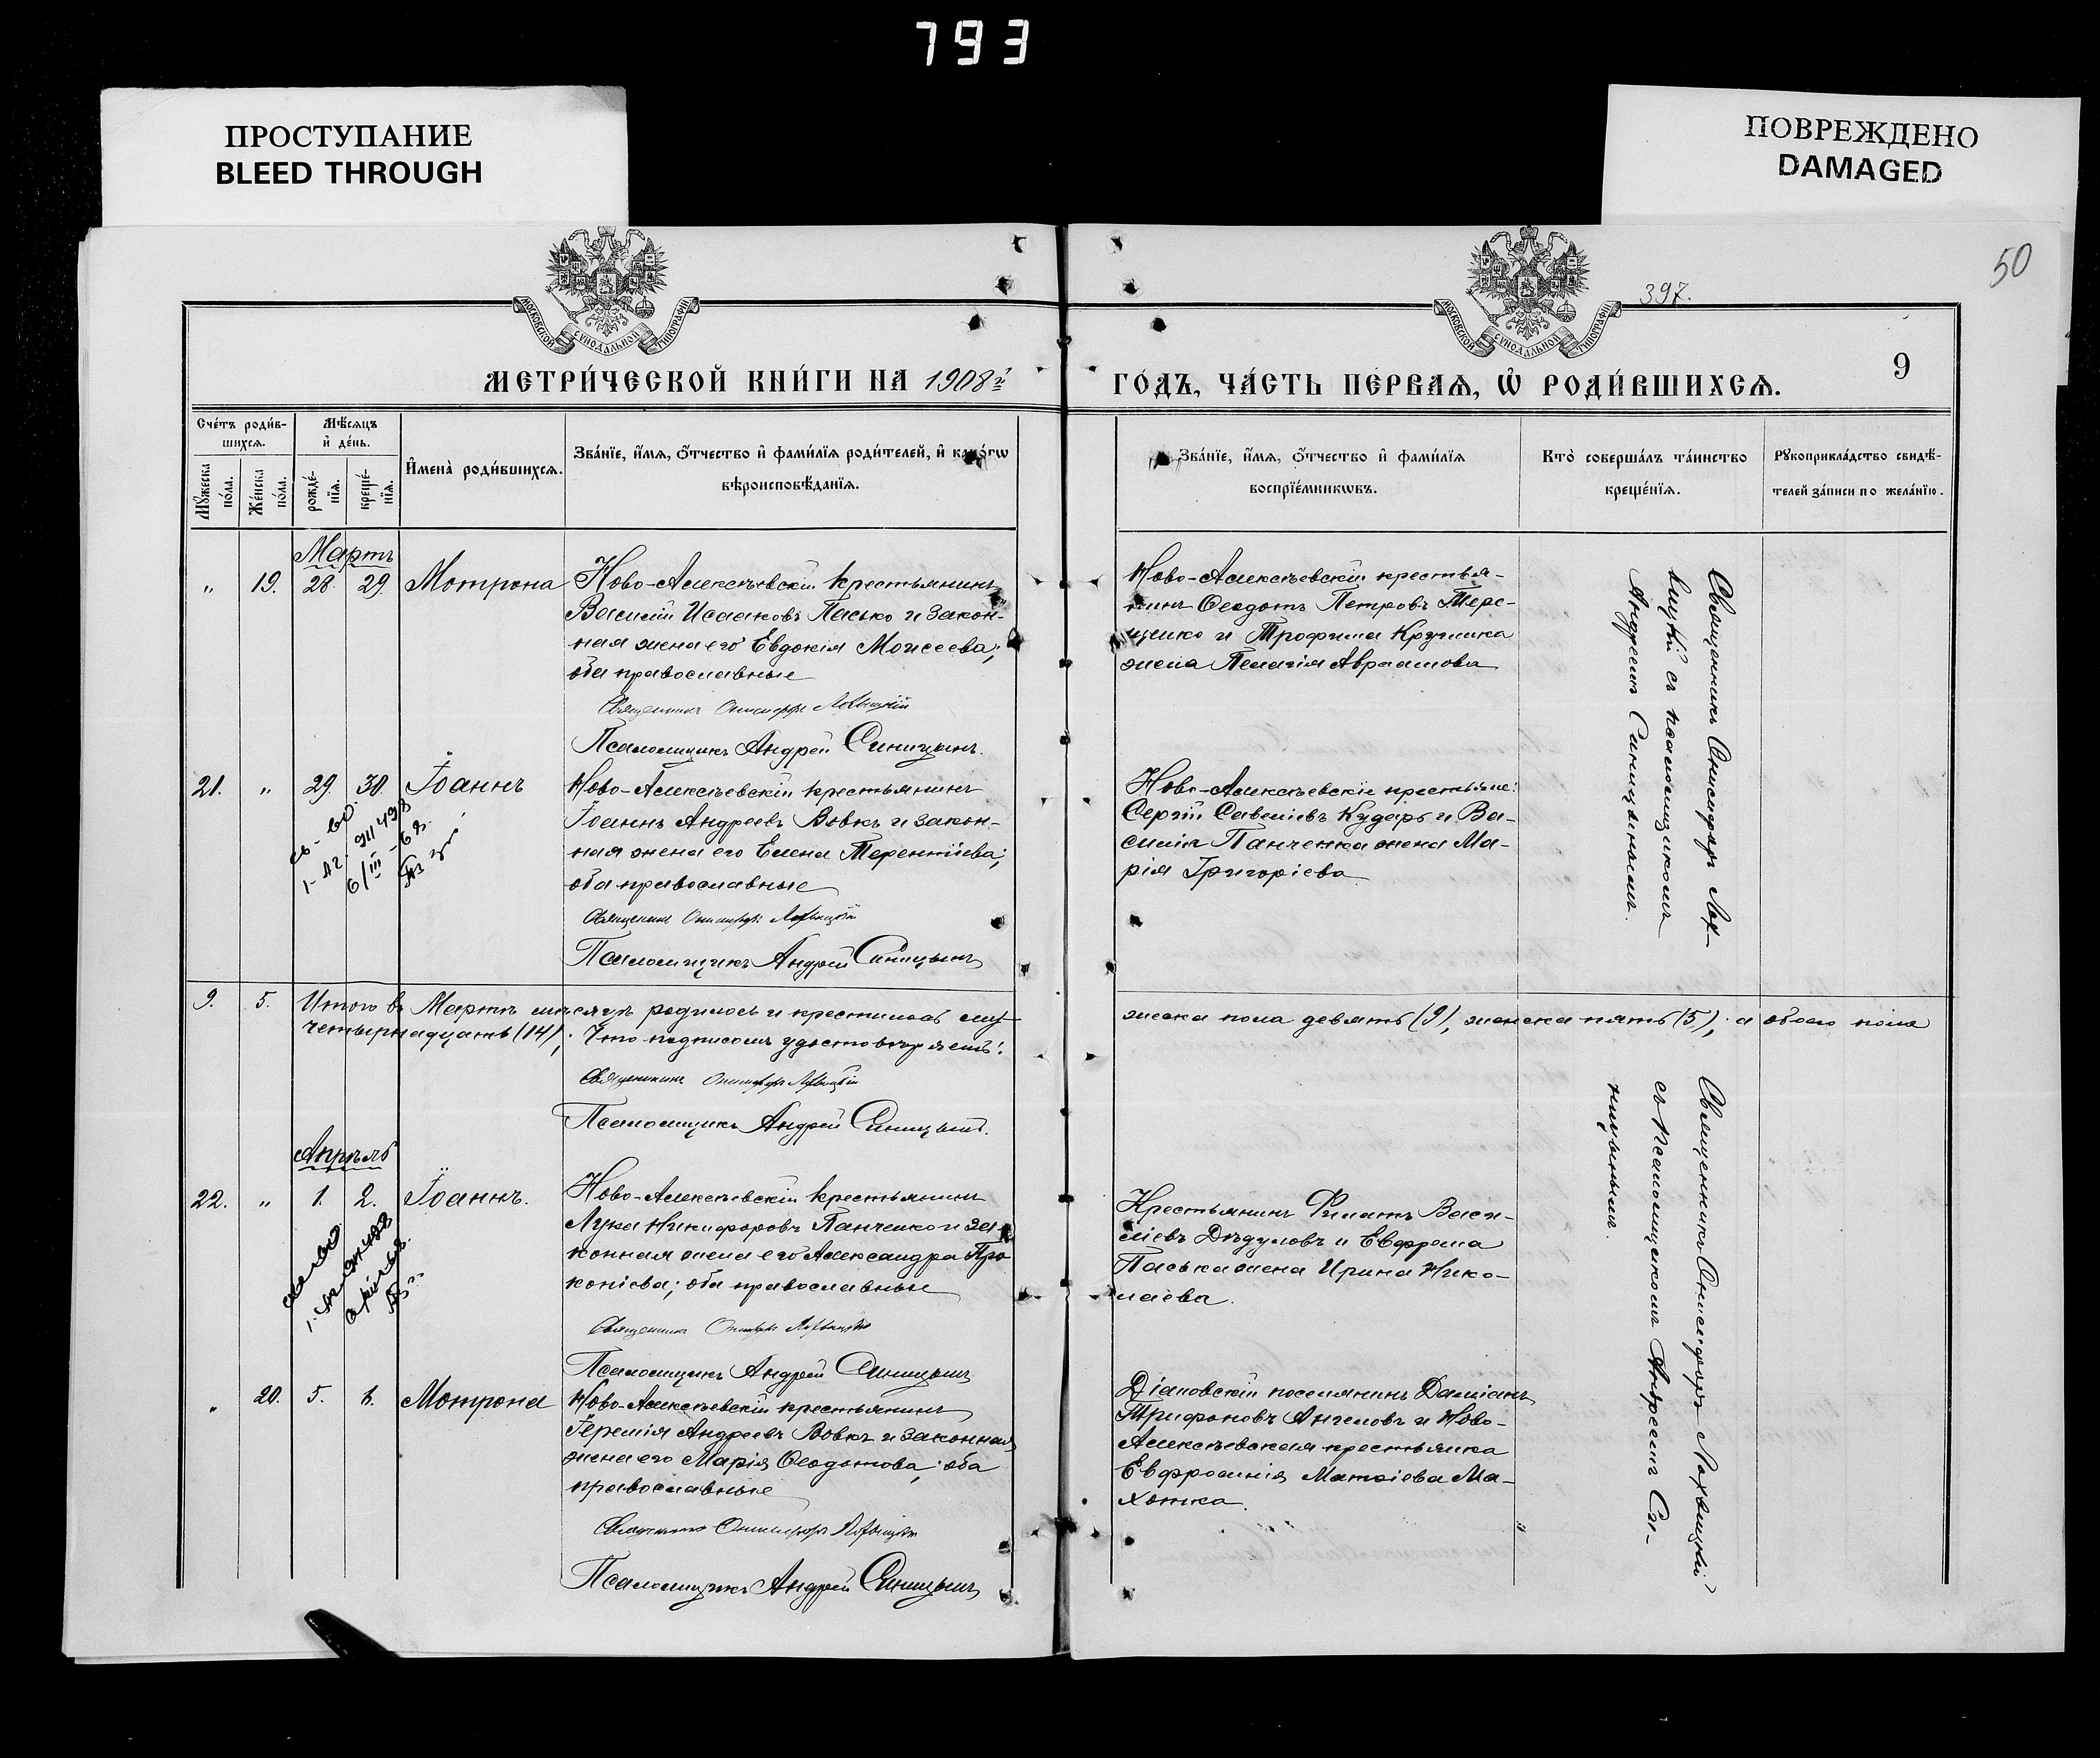 793
ПРОСТУПАНИЕ
BLEED THROUGH
ПОВРЕЖДЕНО
DAMAGED
50
397.
МОСКОВСКОЙ СѴНОДАЛЬНОЙ ТИПОГРАФІИ
МОСКОВСКОЙ СѴНОДАЛЬНОЙ ТИПОГРАФІИ
9
МЕТРИ́ЧЕСКОЙ КНИ́ГИ НА 1908й
ГО́ДЪ, ЧА́СТЬ ПЕ́РВАЯ, Ѡ҆ РОДИ́ВШИХСЯ.
Сче́тъ роди́в-
шихся.
Мѣ́сяцъ
и҆ де́нь.
Мꙋ́жеска
по́ла.
Же́нска
по́ла.
рожде́-
нїя.
креще́-
нїя.
И҆мена̀ роди́вшихся.
Зва́нїе, и҆́мя, ѻ҆́тчество и҆ фами́лїя роди́телей, и҆ како́гѡ
вѣроисповѣ́данїя.
Зва́нїе, и҆́мя, ѻ҆́тчество и҆ фами́лїя
воспрїе́мникѡвъ.
Кто̀ соверша́лъ та́инство
креще́нїя.
Рꙋкоприкла́дство свидѣ́-
телей за́писи по жела́нїю.
Мартъ
„ 19. 28. 29. Мотрона
Ново-Алексѣевскій крестьянинъ
Василій Исааковъ Пасько и закон-
ная жена его Евдокія Моисеева;
оба православные
Священникъ Онисифоръ Лохвицкій
Псаломщикъ Андрей Синицынъ.
Ново-Алексѣевскій крестья-
нинъ Ѳеодотъ Петровъ Тере-
щенко и Трофима Кручинка
жена Пелагія Авраамова
Священникъ Онисифоръ Лох-
вицкій съ псаломщикомъ
Андреемъ Синицынымъ.
21. „ 29. 30. Іоаннъ
Ново-Алексѣевскій крестьянинъ
Іоаннъ Андреевъ Вовкъ и закон-
ная жена его Елена Терентіева;
оба православные
Священникъ Онисифоръ Лохвицкій
Псаломщикъ Андрей Синицынъ
Ново-Алексѣевскіе крестьяне:
Сергій Савеліевъ Кударь и Ва-
силія Панченка жена Ма-
рія Григоріева
9. 5. Итого въ Мартѣ мѣсяцѣ родилось и крестилось му-
жеска пола девять (9), женска пять (5); а обоего пола
четырнадцать (14); Что подписомъ удостовѣряемъ:
Священникъ Онисифоръ Лохвицкій
Псаломщикъ Андрей Синицынъ.
Апрѣль
22. „ 1. 2. Іоаннъ.
Ново-Алексѣевскій крестьянинъ
Лука Никифоровъ Панченко и за-
конная жена его Александра Про-
копіева; оба православные
Священникъ Онисифоръ Лохвицкій
Псаломщикъ Андрей Синицынъ
Крестьянинъ Филатъ Васи-
ліевъ Дѣдуловъ и Ефрема
Паська жена Ирина Нико-
лаева.
Священникъ Онисифоръ Лохвицкій
съ псаломщикомъ Андреемъ Си-
ницынымъ.
„ 20. 5. 6. Мотрона
Ново-Алексѣевскій крестьянинъ
Іеремія Андреевъ Вовкъ и законная
жена его Марія Ѳеодотова; оба
православные
Священникъ Онисифоръ Лохвицкій
Псаломщикъ Андрей Синицынъ
Діановскій поселянинъ Даміанъ
Трифоновъ Ангеловъ и Ново-
Алексѣевская крестьянка
Евфросинія Матѳіева Ма-
хотка.